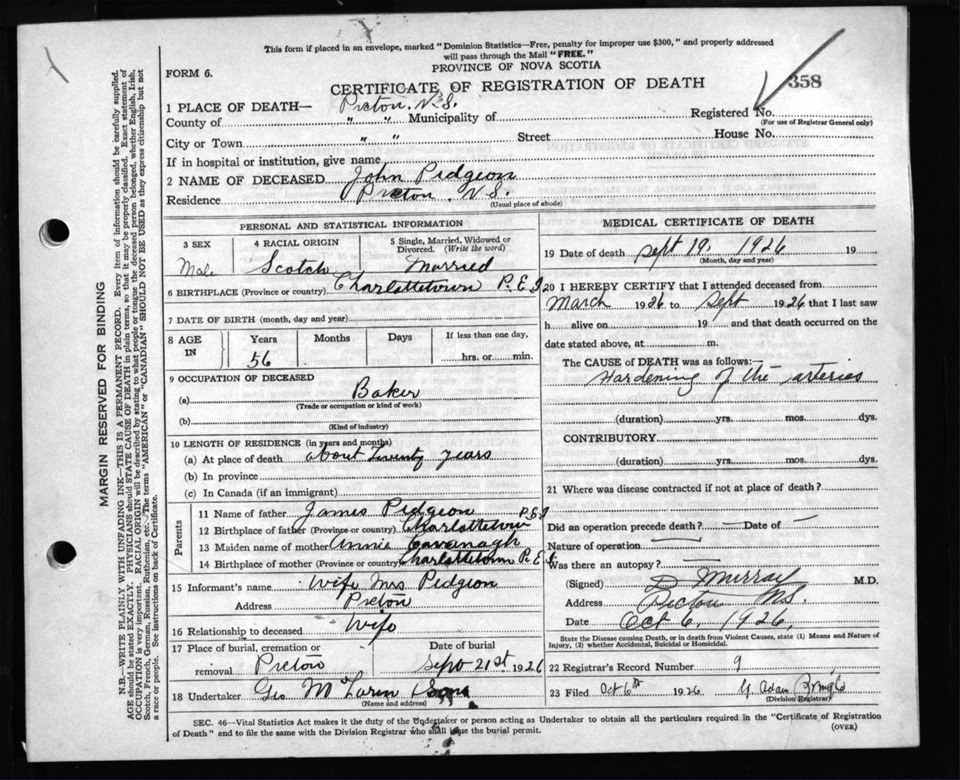 This form if placed in an envelope, marked "Dominion Statistics—Free, penalty for improper use $300," and properly addressed
will pass through the Mail "FREE."
PROVINCE OF NOVA SCOTIA
FORM 6.
CERTIFICATE OF REGISTRATION OF DEATH
358
1 PLACE OF DEATH— Pictou, N.S.
Registered No.
(For use of Registrar General only)
County of " " Municipality of
City or Town " " Street House No.
If in hospital or institution, give name
2 NAME OF DECEASED John Pidgeon
Residence Pictou N.S.
(Usual place of abode)
PERSONAL AND STATISTICAL INFORMATION
3 SEX
4 RACIAL ORIGIN
5 Single, Married, Widowed or
Divorced. (Write the word)
Male Scotch Married
6 BIRTHPLACE (Province or country) Charlottetown P.E.I
7 DATE OF BIRTH (month, day and year)
8 AGE
IN
Years Months Days
If less than one day,
hrs. or min.
56
9 OCCUPATION OF DECEASED
(a) Baker
(Trade or occupation or kind of work)
(b)
(Kind of industry)
10 LENGTH OF RESIDENCE (in years and months)
(a) At place of death about Twenty years
(b) In province
(c) In Canada (if an immigrant)
Parents
11 Name of father James Pidgeon
12 Birthplace of father (Province or country) Charlottetown P.E.I
13 Maiden name of mother Annie Cavanagh
14 Birthplace of mother (Province or country) Charlottetown P.E.I.
15 Informant's name Wife Mrs Pidgeon
Address Pictou
16 Relationship to deceased Wife
17 Place of burial, cremation or
removal Pictou
Date of burial
Sept 21st 1926
18 Undertaker Geo McLaren & Sons
(Name and address)
MEDICAL CERTIFICATE OF DEATH
19 Date of death Sept 19, 1926 19
(Month, day and year)
20 I HEREBY CERTIFY that I attended deceased from
March 1926 to Sept 1926 that I last saw
h alive on 19 and that death occurred on the
date stated above, at m.
The CAUSE of DEATH was as follows:—
Hardening of the arteries
(duration) yrs. mos. dys.
CONTRIBUTORY
(duration) yrs. mos. dys.
21 Where was disease contracted if not at place of death?
Did an operation precede death? — Date of —
Nature of operation —
Was there an autopsy? —
(Signed) D Murray M.D.
Address Pictou N.S.
Date Oct 6, 1926,
State the Disease causing Death, or in death from Violent Causes, state (1) Means and Nature of
Injury, (2) whether Accidental, Suicidal or Homicidal.
22 Registrar's Record Number 9
23 Filed Oct 6th 1926
(Division Registrar)
SEC. 46—Vital Statistics Act makes it the duty of the Undertaker or person acting as Undertaker to obtain all the particulars required in the "Certificate of Registration
of Death" and to file the same with the Division Registrar who shall issue the burial permit.
(OVER)
MARGIN RESERVED FOR BINDING
N.B.—WRITE PLAINLY WITH UNFADING INK—THIS IS A PERMANENT RECORD. Every item of information should be carefully supplied.
AGE should be stated EXACTLY. PHYSICIANS should STATE CAUSE OF DEATH in plain terms, so that it may be properly classified. Exact statement of
OCCUPATION is very important. RACIAL ORIGIN will be described by stating to what people or tongue the deceased person belonged, whether English, Irish,
Scotch, French, German, Russian, Ruthenian, etc. The terms "AMERICAN" or "CANADIAN" SHOULD NOT BE USED as they express citizenship but not
a race or people. See instructions on back of Certificate.